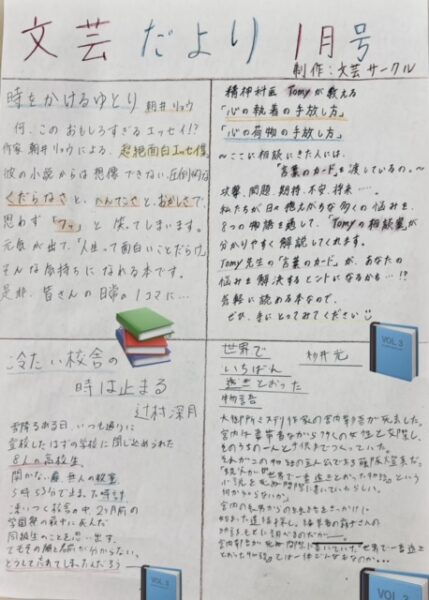 文芸だより 1月号
制作：文芸サークル
時をかけるゆとり 朝井リョウ
何、このおもしろすぎるエッセイ!?
作家 朝井リョウによる、超絶面白エッセイ集。
彼の小説からは想像できない圧倒的な
くだらなさと、へんてこさと、おかしさで、
思わず「フッ」と笑ってしまいます。
元気が出て、「人生って面白いことだらけ」
そんな気持ちになれる本です。
是非、皆さんの日常の1コマに…
精神科医 Tomyが教える
「心の執着の手放し方」
「心の荷物の手放し方」
～ここに相談にきた人には、
「言葉のカード」を渡しているの。～
攻撃、問題、期待、不安、将来……。
私たちが日々抱えがちな多くの悩みを、
8つの物語を通して、「Tomyの相談室」が
分かりやすく解説してくれます。
Tomy先生の「言葉のカード」が、あなたの
悩みを解決するヒントになるかも…!?
気軽に読める本なので、
ぜひ、手にとってみてください
冷たい校舎の
時は止まる
辻村深月
雪降るある日、いつも通りに
登校したはずの学校に閉じ込められた
8人の高校生。
開かない扉、無人の教室
5時53分で止まった時計
凍りつく校舎の中、2ヶ月前の
学園祭の最中に死んだ
同級生のことを思い出す。
でもその顔と名前が分からない。
どうして忘れてしまったんだろう
世界で
いちばん
透きとおった
物語
杉井光
大御所ミステリ作家の宮内彰吾が死去した。
宮内は妻帯者ながら多くの女性と交際し、
そのうちの一人と子供までつくっていた。
それがこの物語の主人公である藤阪燈真だ。
「親父が『世界で一番透きとおった物語』という
小説を死ぬ間際に書いていたらしい。
何か知らないか」
宮内の長男からの連絡をきっかけに
VOL 3
VOL 3
VOL 3